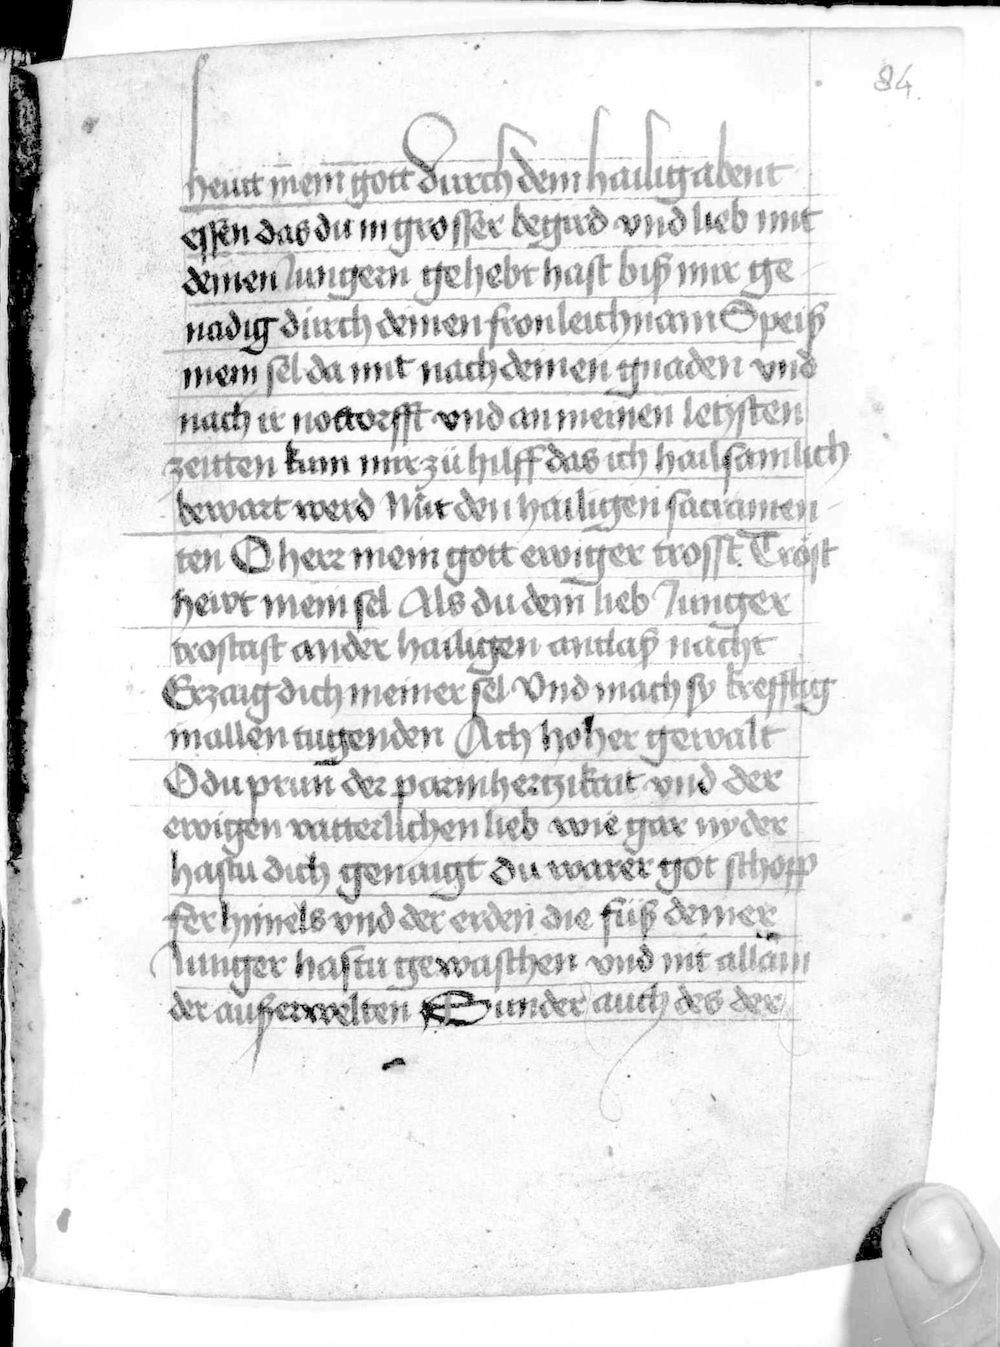 84.
heutt mein gott durch dem hailig abent
essen das du in grosser begird vnd lieb mit
deinen Jungern gehebt hast biß mir ge
nadig durch deinen fronleichnam Speiß
mein sel da mit nach deinen gnaden vnd
nach ir nottorfft vnd an meinen letzsten
zeitten kum mir zü hilff das ich hailsamlich
bewart werd Mit den hailigen sacramen
ten O herr mein gott ewiger trosst Tröst
hewt mein sel Als du dein lieb Junger
trostast an der hailigen antlaß nacht
Erzaig dich meiner sel Vnd mach sy krefftig
in allen tugenden Ach hoher gewalt
O du prun der parmhertzikait vnd der
ewigen vatterlichen lieb wie gar nyder
hastu dich genaigt du warer got schopp
fer himels vnd der erden die füß deiner
Junger hastu gewaschen vnd nit allain
der außerwelten Sunder auch des der